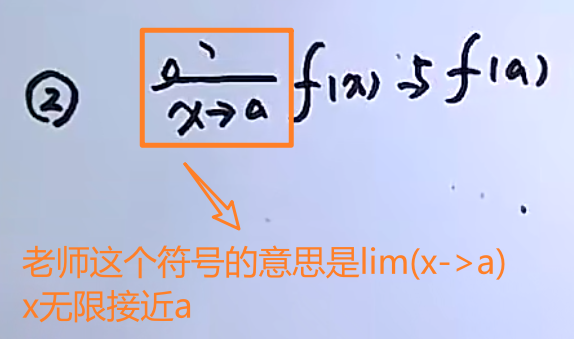 ② x→a f(x) 与 f(a)
老师这个符号的意思是lim(x->a)
x无限接近a